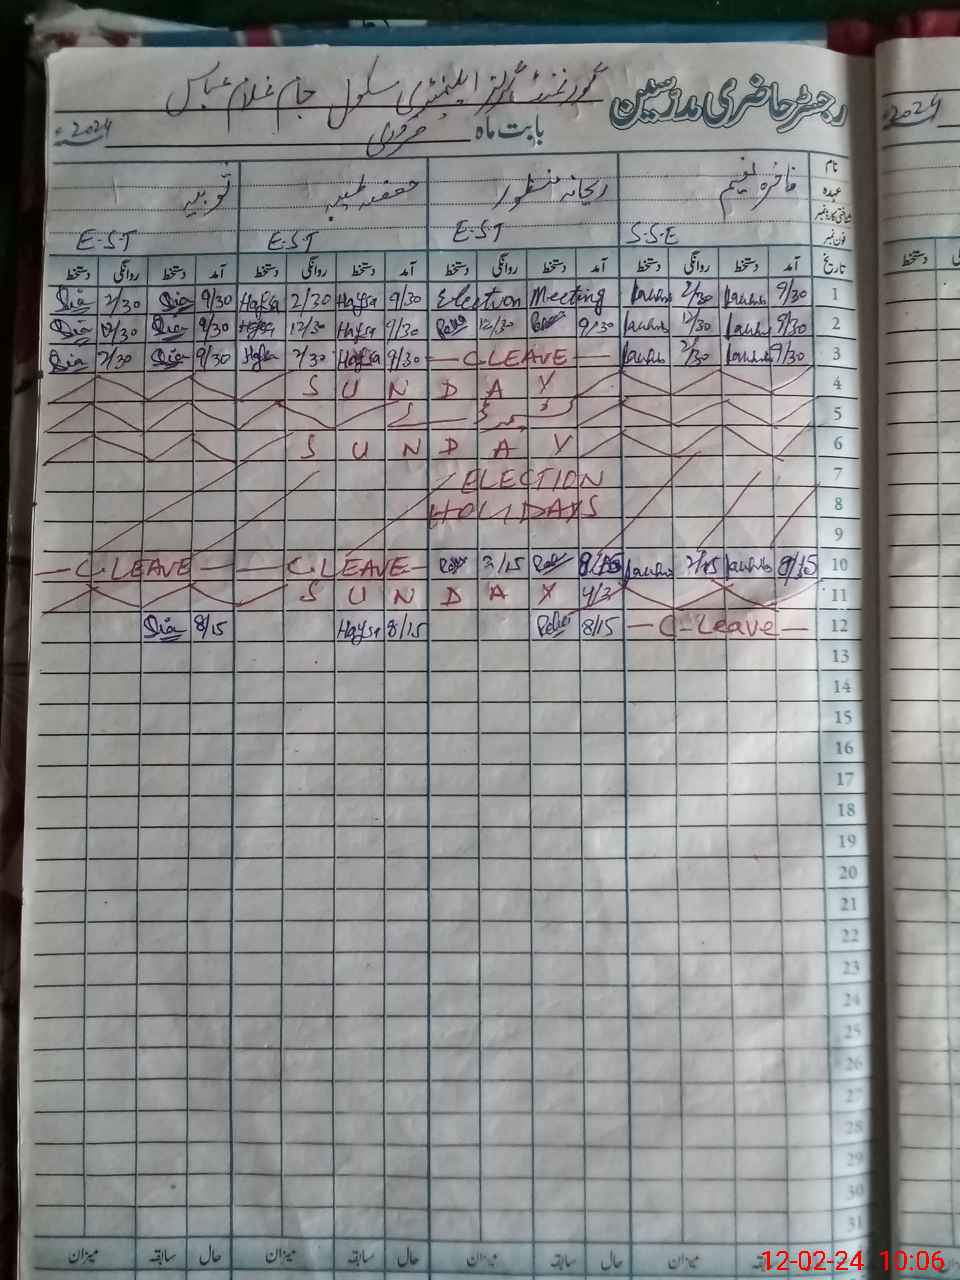 رجسٹر حاضری مدرسین گورنمنٹ گرلز ایلیمنٹری سکول جام غلام عباس
بابت ماہ فروری 2024ء
نام فاخرہ نسیم ریحانہ منظور حفصہ طیبہ ثوبیہ
عہدہ
فون نمبر S.S.E E.S.T E.S.T E.S.T
تاریخ آمد دستخط روانگی دستخط آمد دستخط روانگی دستخط آمد دستخط روانگی دستخط آمد دستخط روانگی دستخط
Sia 2/30 Sia 9/30 Hafsa 2/30 Hafsa 9/30 Election Meeting 2/30 9/30 1
Sia 12/30 Sia 9/30 Hafsa 12/30 Hafsa 9/30 12/30 9/30 12/30 9/30 2
Sia 2/30 Sia 9/30 Hafsa 2/30 Hafsa 9/30 — C LEAVE — 2/30 9/30 3
S U N D A Y 4
5
S U N D A Y 6
ELECTION 7
HOLIDAYS 8
9
— C LEAVE — — C LEAVE — 2/15 8/15 2/15 8/15 10
S U N D A Y 11
Sia 8/15 Hafsa 8/15 8/15 — C-Leave — 12
13
14
15
16
17
18
19
20
21
22
23
24
25
26
27
28
29
30
31
حال سابقہ میزان حال سابقہ میزان حال سابقہ میزان
12-02-24 10:06